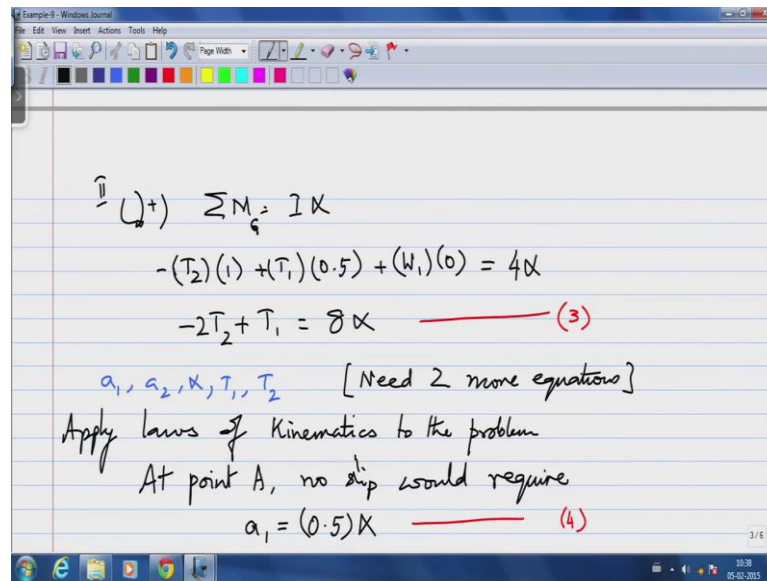 Example-9 - Windows Journal
File Edit View Insert Actions Tools Help
Page Width
II ↻+) ΣM_G = Iα
-(T₂)(1) +(T₁)(0.5) + (W₁)(0) = 4α
-2T₂ + T₁ = 8α (3)
a₁, a₂, α, T₁, T₂ [Need 2 more equations]
Apply laws of Kinematics to the problem
At point A, no slip would require
a₁ = (0.5)α (4)
3/6
10:38
05-02-2015